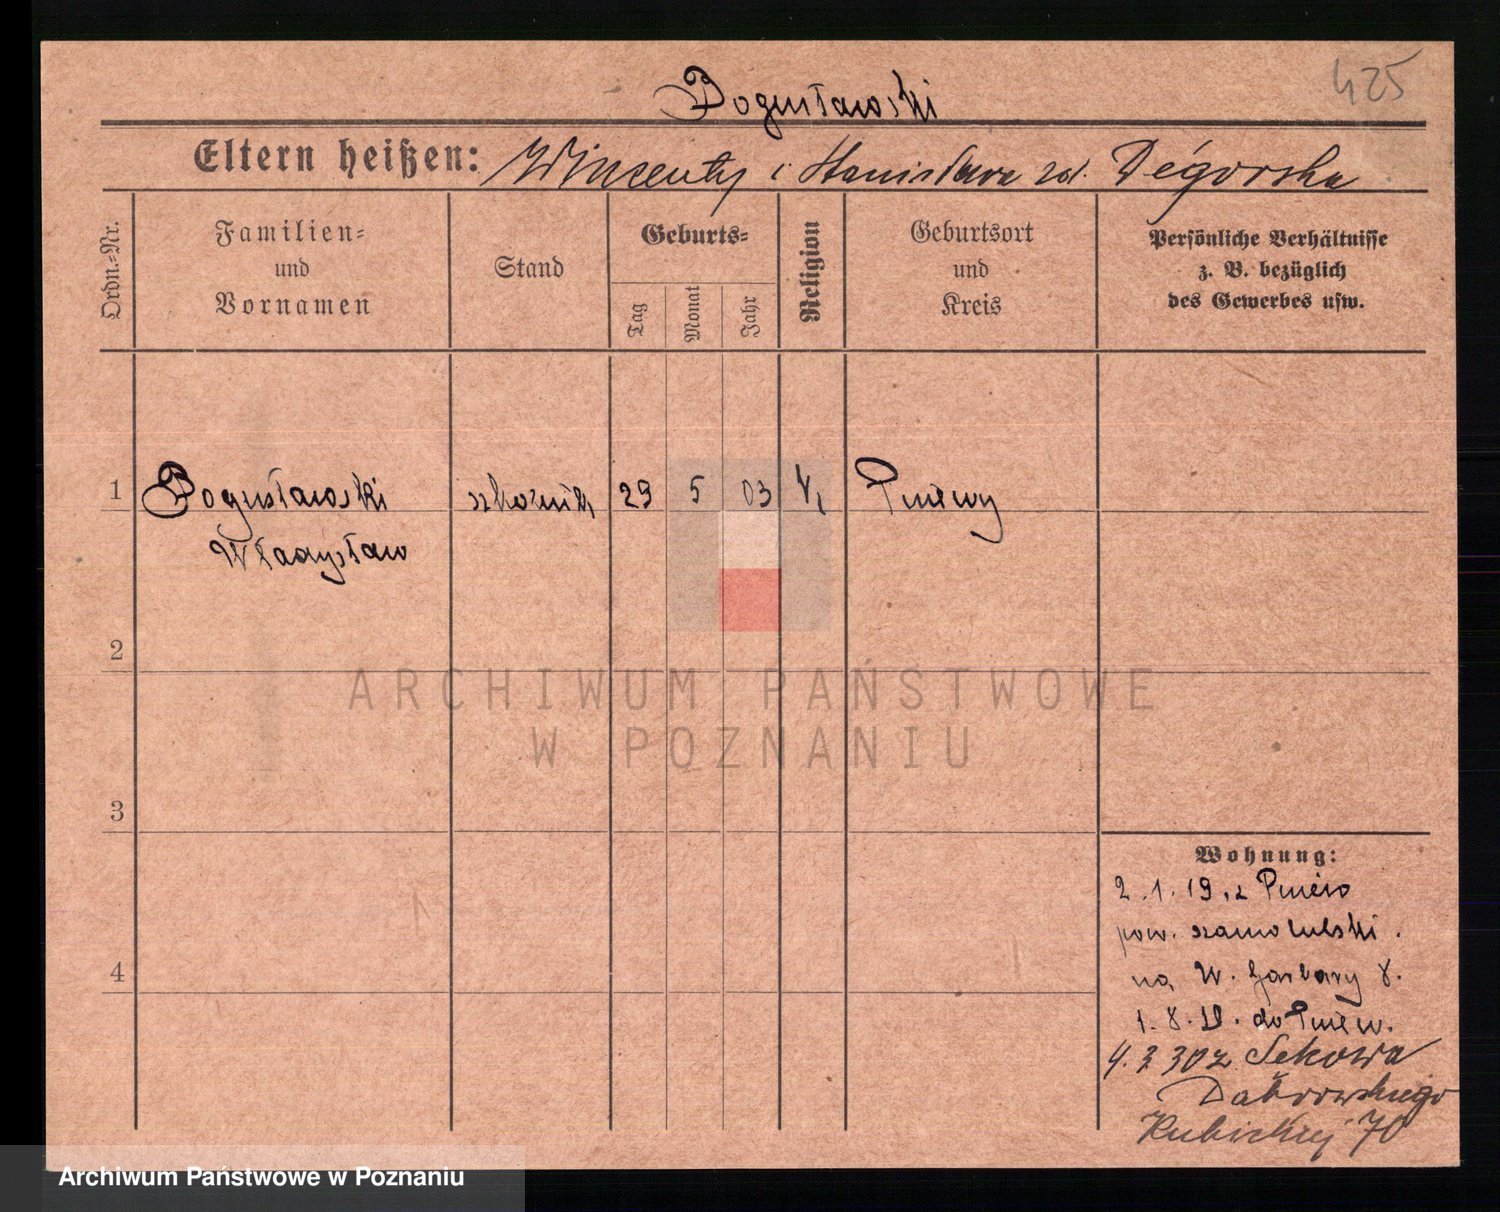 425
Bogusławski
Eltern heißen: Wincenty i Stanisława zd. Degorska
Ordn.=Nr.
Familien=
und
Vornamen
Stand
Geburts=
Tag
Monat
Jahr
Religion
Geburtsort
und
Kreis
Persönliche Verhältnisse
z. B. bezüglich
des Gewerbes usw.
1 Bogusławski 29 5 03 Pniewy
Władysław
2
3
4
Wohnung:
2.1.19. z Pniew
pow. szamotulski.
na W. Garbary 8.
1.8.19. do Pniew.
4.3 30 z Sękowa
Dąbrowskiego
70
ARCHIWUM PAŃSTWOWE
W POZNANIU
Archiwum Państwowe w Poznaniu